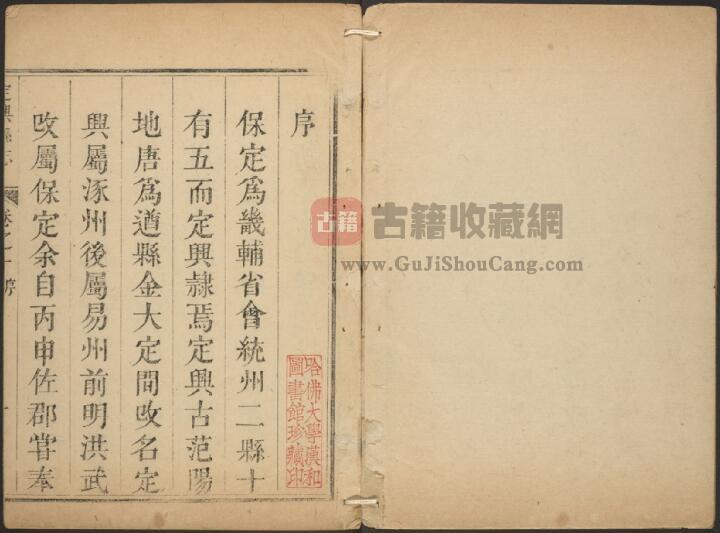 序
保定爲畿輔省會統州二縣十
有五而定興隷焉定興古范陽
地唐爲遒縣金大定間改名定
興屬涿州後屬易州前明洪武
改屬保定余自丙申佐郡嘗奉
定興縣志 卷之一 序 一
哈佛大學漢和
圖書館珍藏印
古籍 古籍收藏網
www.GuJiShouCang.com